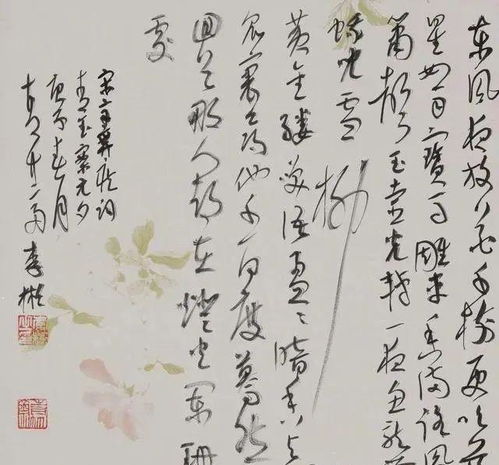 东风夜放花千树更吹落
星如雨寶马雕车香满路风
箫声动玉壶光转一夜鱼龙
蛾儿雪柳
黄金缕笑语盈盈暗香去
众里寻他千百度蓦然
回首那人却在燈火阑珊
处
宋辛弃疾词
青玉案元夕
春月
李彬